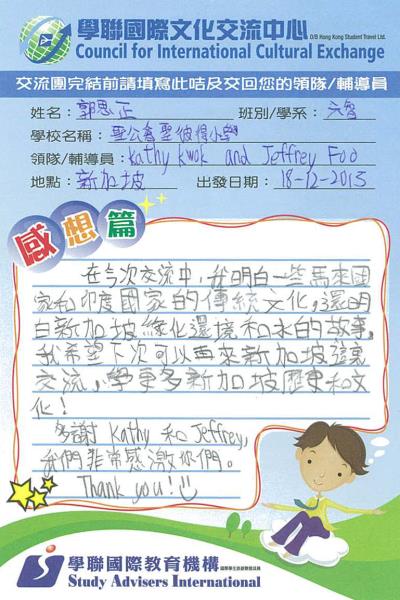 學聯國際文化交流中心 O/B Hong Kong Student Travel Ltd.
Council for International Cultural Exchange
交流團完結前請填寫此咭及交回您的領隊/輔導員
姓名：郭思正 班別/學系：六智
學校名稱：聖公會聖彼得小學
領隊/輔導員：Kathy Kwok and Jeffrey Foo
地點：新加坡 出發日期：18-12-2015
感想篇
在今次交流中，我明白一些馬來國
家和印度國家的傳統文化，還明
白新加坡綠化環境和水的故事。
我希望下次可以再來新加坡這裏
交流，學更多新加坡歷史和文
化！
多謝 Kathy 和 Jeffrey,
我們非常感激你們。
Thank you!
學聯國際教育機構
Study Advisers International